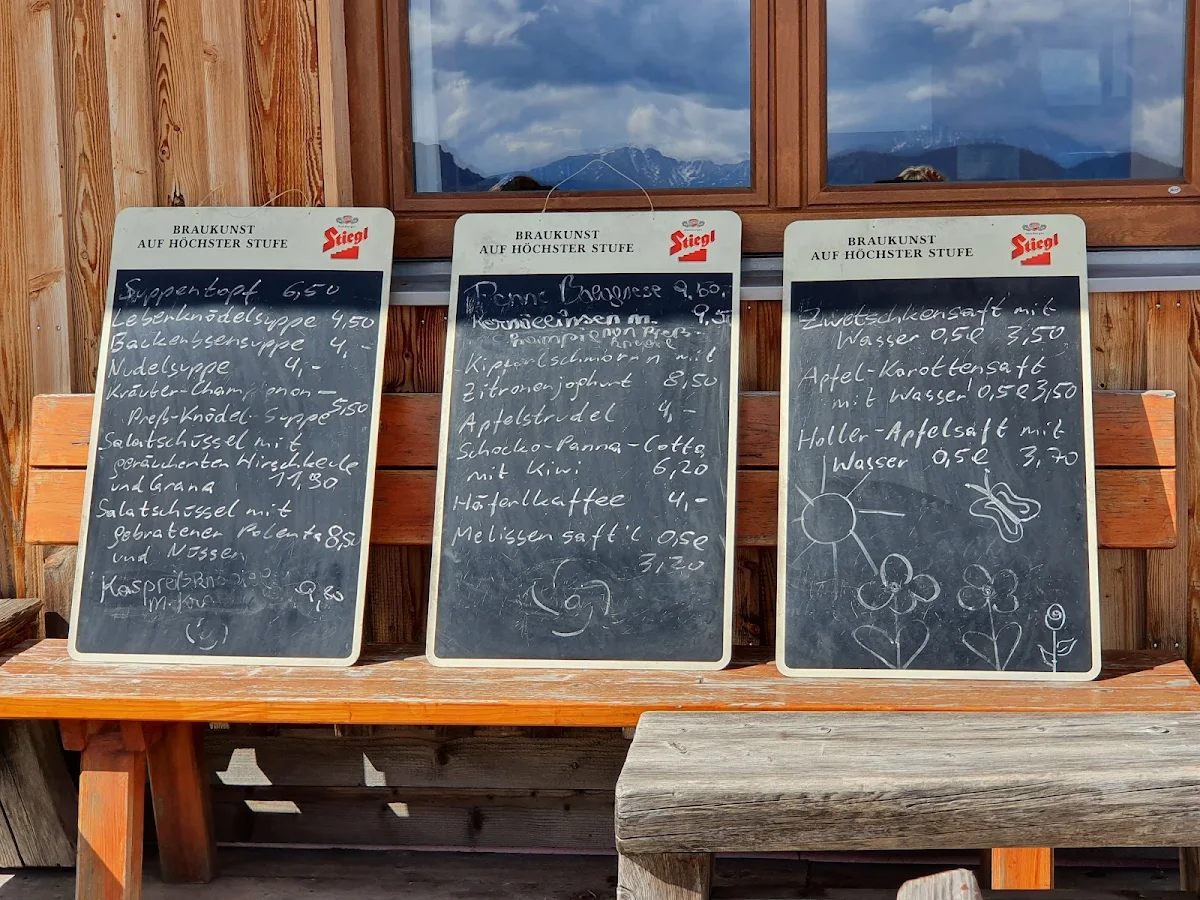 BRAUKUNST
AUF HÖCHSTER STUFE
Stiegl
Suppentopf 6,50
Leberknödelsuppe 4,50
Backerbsensuppe 4,-
Nudelsuppe 4,-
Kräuter-Champignon-
Preß-Knödel-Suppe 5,50
Salatschüssel mit
geräucherten Hirschkeule
und Grana 11,90
Salatschüssel mit
gebratener Polenta 8,50
und Nüssen
Kaspreßknödel
m. 9,80
BRAUKUNST
AUF HÖCHSTER STUFE
Stiegl
Penne Bolognese 9,60,-
m. 9,50
Kipferlschmarrn mit
Zitronenjoghurt 8,50
Apfelstrudel 4,-
Schocko-Panna-Cotta
mit Kiwi 6,20
Häferlkaffee 4,-
Melissensaft 0,5l
3,20
BRAUKUNST
AUF HÖCHSTER STUFE
Stiegl
Zwetschkensaft mit
Wasser 0,5l 3,50
Apfel-Karottensaft
mit Wasser 0,5l 3,50
Holler-Apfelsaft mit
Wasser 0,5l 3,70